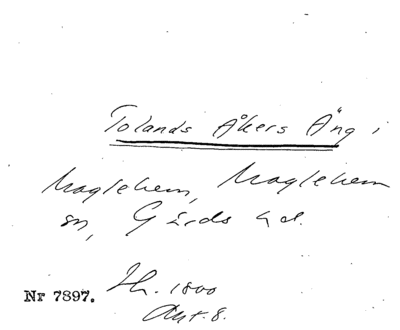 Tolands Åkers Äng i
Maglehem, Maglehem
sn, Gärds hd.
Nr 7897. Lh. 1800
Akt. 8.